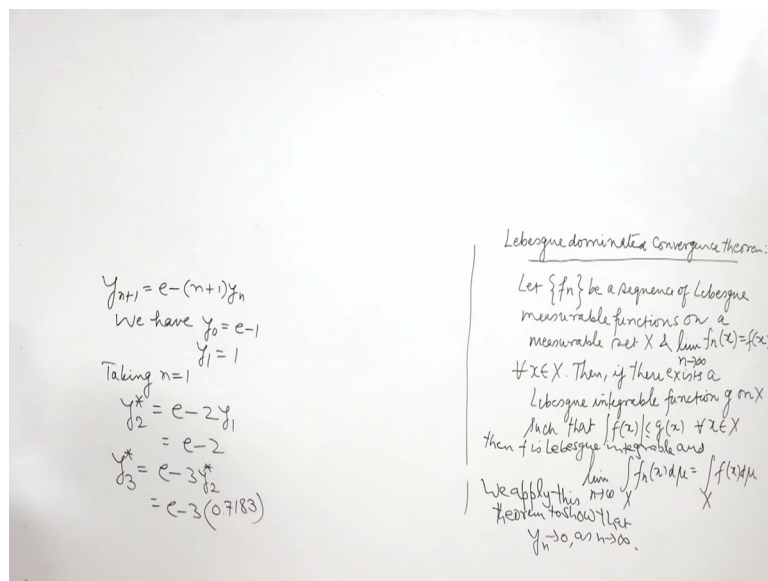 y_{n+1} = e-(n+1)y_n
We have y_0 = e-1
y_1 = 1
Taking n=1
y_2^* = e-2y_1
= e-2
y_3^* = e-3y_2^*
= e-3(0.7183)
Lebesgue dominated Convergence theorem:
Let {fn} be a sequence of Lebesgue
measurable functions on a
measurable set X & lim_{n→∞} fn(x)=f(x)
∀ x∈X. Then, if there exists a
Lebesgue integrable function g on X
such that |f(x)| ≤ g(x) ∀ x∈X
then f is Lebesgue integrable and
lim_{n→∞} ∫_X fn(x)dμ = ∫_X f(x)dμ
We apply this
theorem to show that
y_n→0, as n→∞.